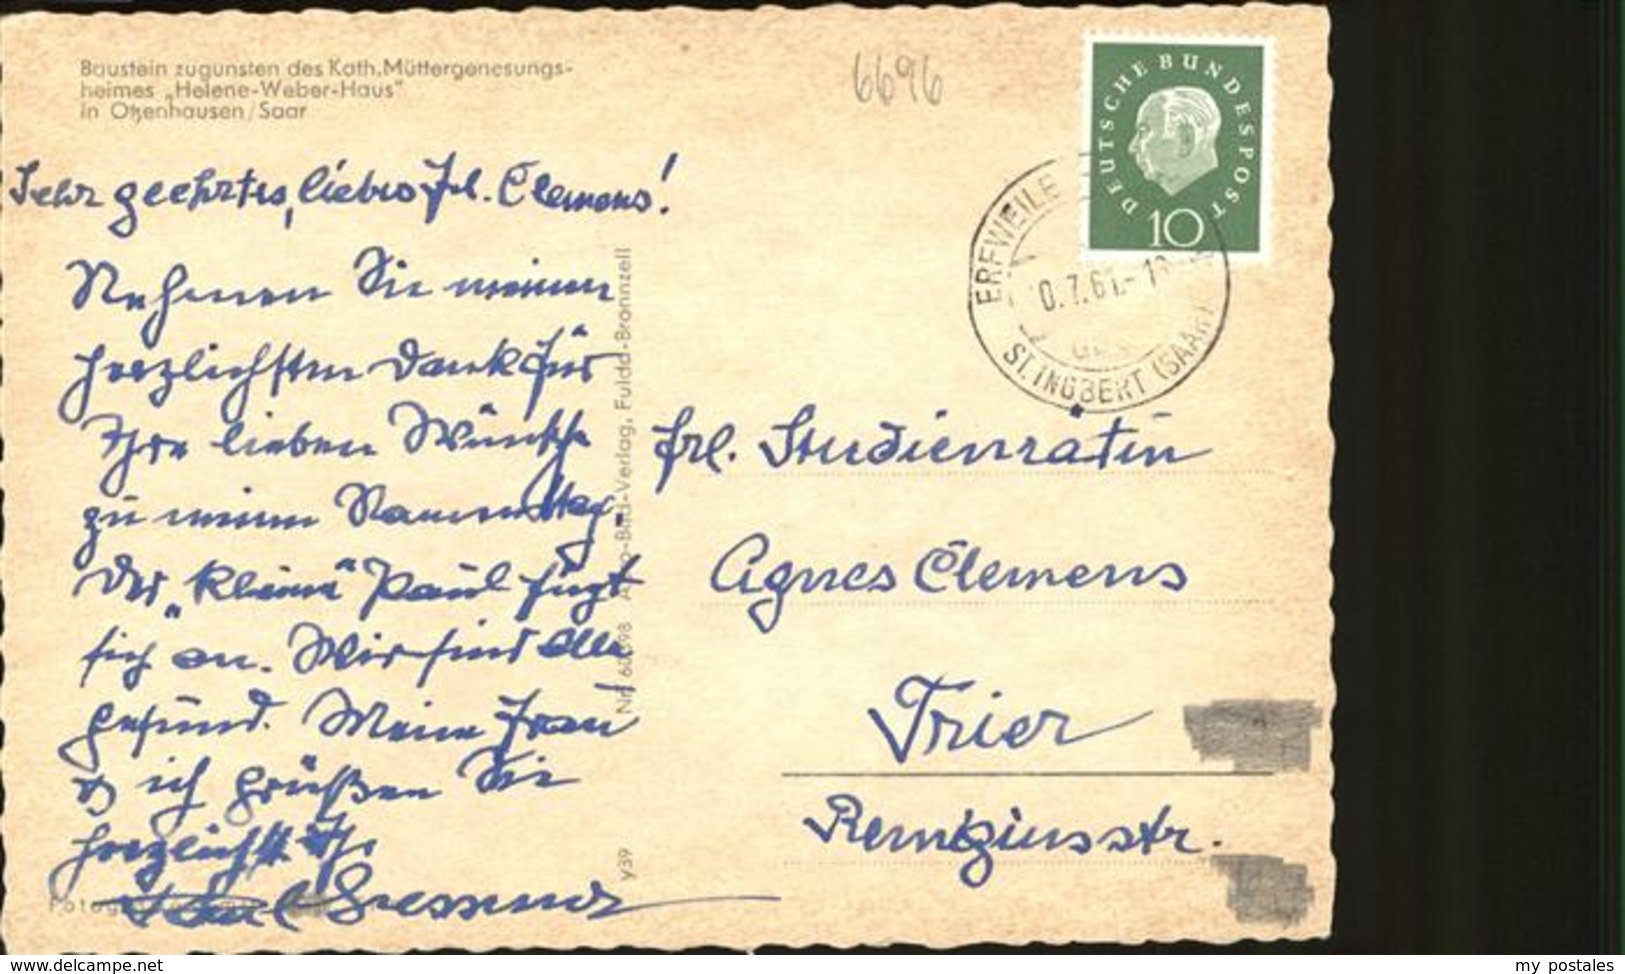 Baustein zugunsten des Kath. Müttergenesungs-
heimes „Helene-Weber-Haus"
in Otzenhausen/Saar
6696
DEUTSCHE BUNDESPOST
10
ERFWEILE
0.7.61.-18
ST. INGBERT (SAAR)
Sehr geehrtes, liebes Frl. Clemens!
Nehmen Sie meinen
herzlichsten Dank für
Ihre lieben Wünsche
zu meinem Namenstag.
Der „kleine" Paul fügt
sich an. Wir sind alle
gesund. Meine Frau
u. ich grüßen Sie
herzlichst Ihr
Frl. Studienrätin
Agnes Clemens
Trier
Remigiusstr.
Nr. 60 98 A o-Bild-Verlag, Fulda-Bronnzell
y39
www.delcampe.net
my_postales